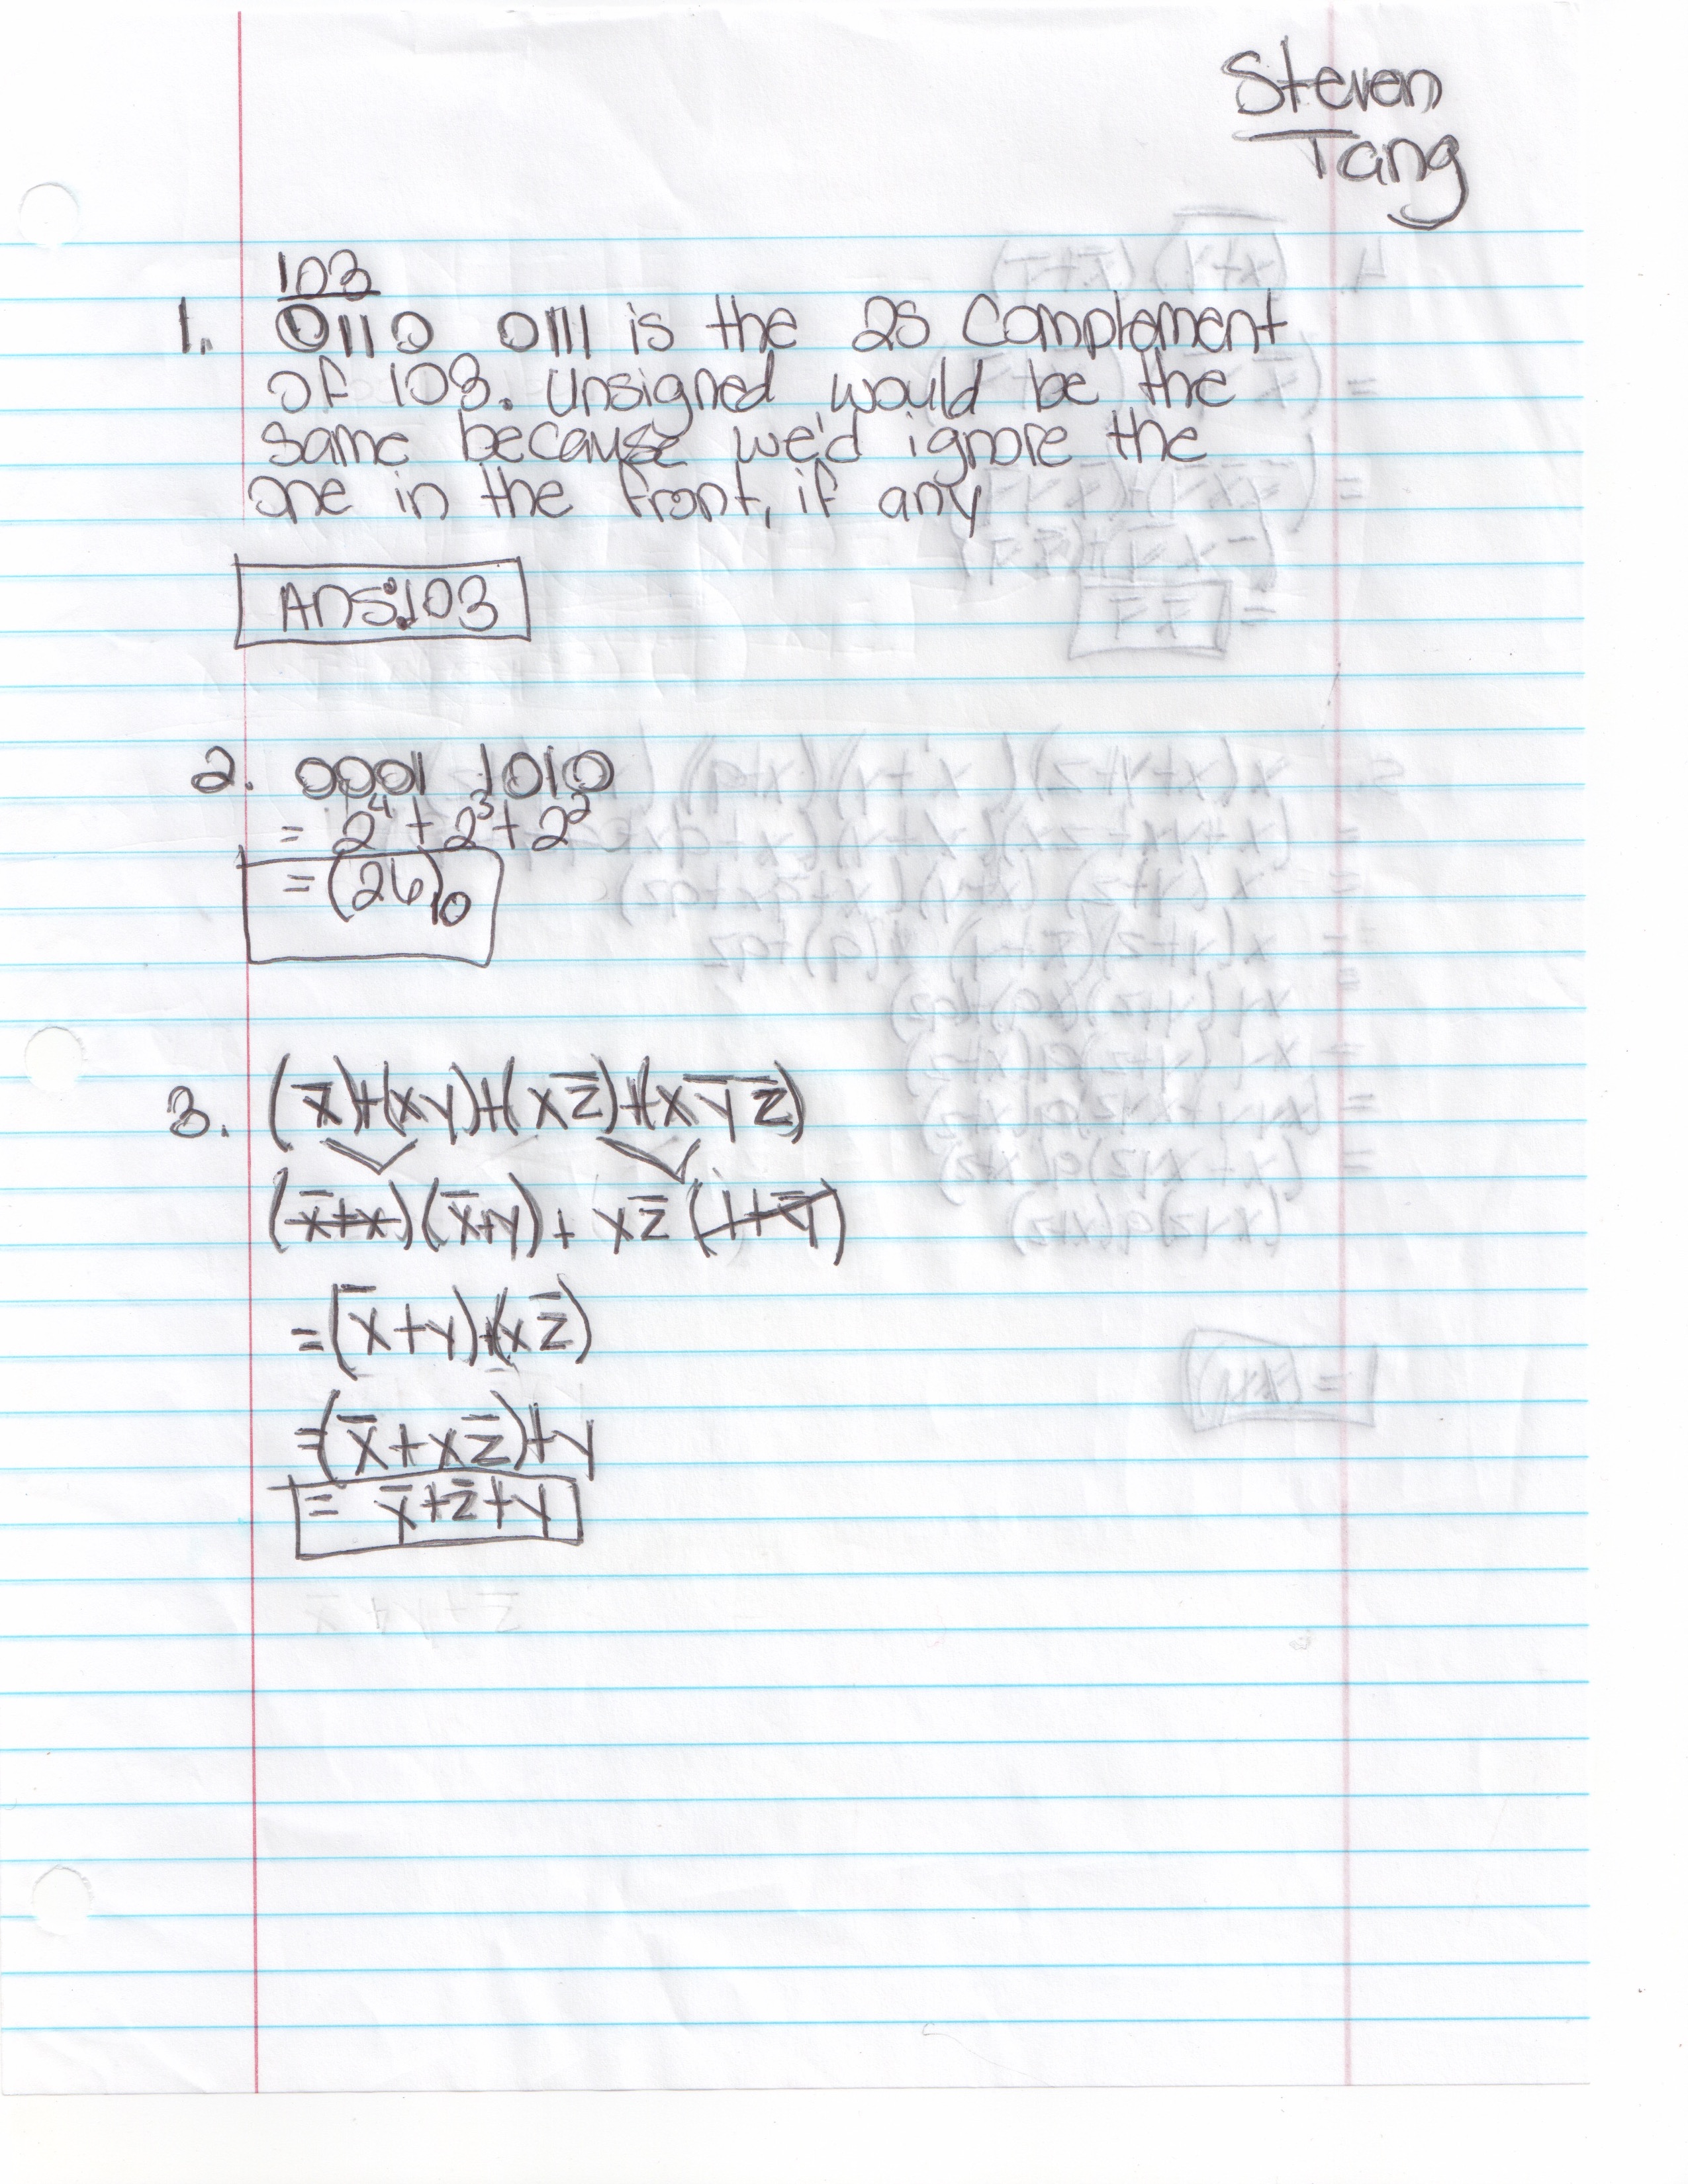 Steven
Tang
103
1. 0110 0111 is the 2s Complement
of 103. Unsigned would be the
same because we'd ignore the
one in the front, if any
Ans: 103
2. 0001 1010
= 2⁴ + 2³ + 2²
= (26)₁₀
3. (x̅)+(xy)+(xz̅)+(xy̅z̅)
(x̅+x)(x̅+y)+ xz̅(1+y̅)
=(x̅+y)+(xz̅)
=(x̅+xz̅)+y
= x̅+z̅+y